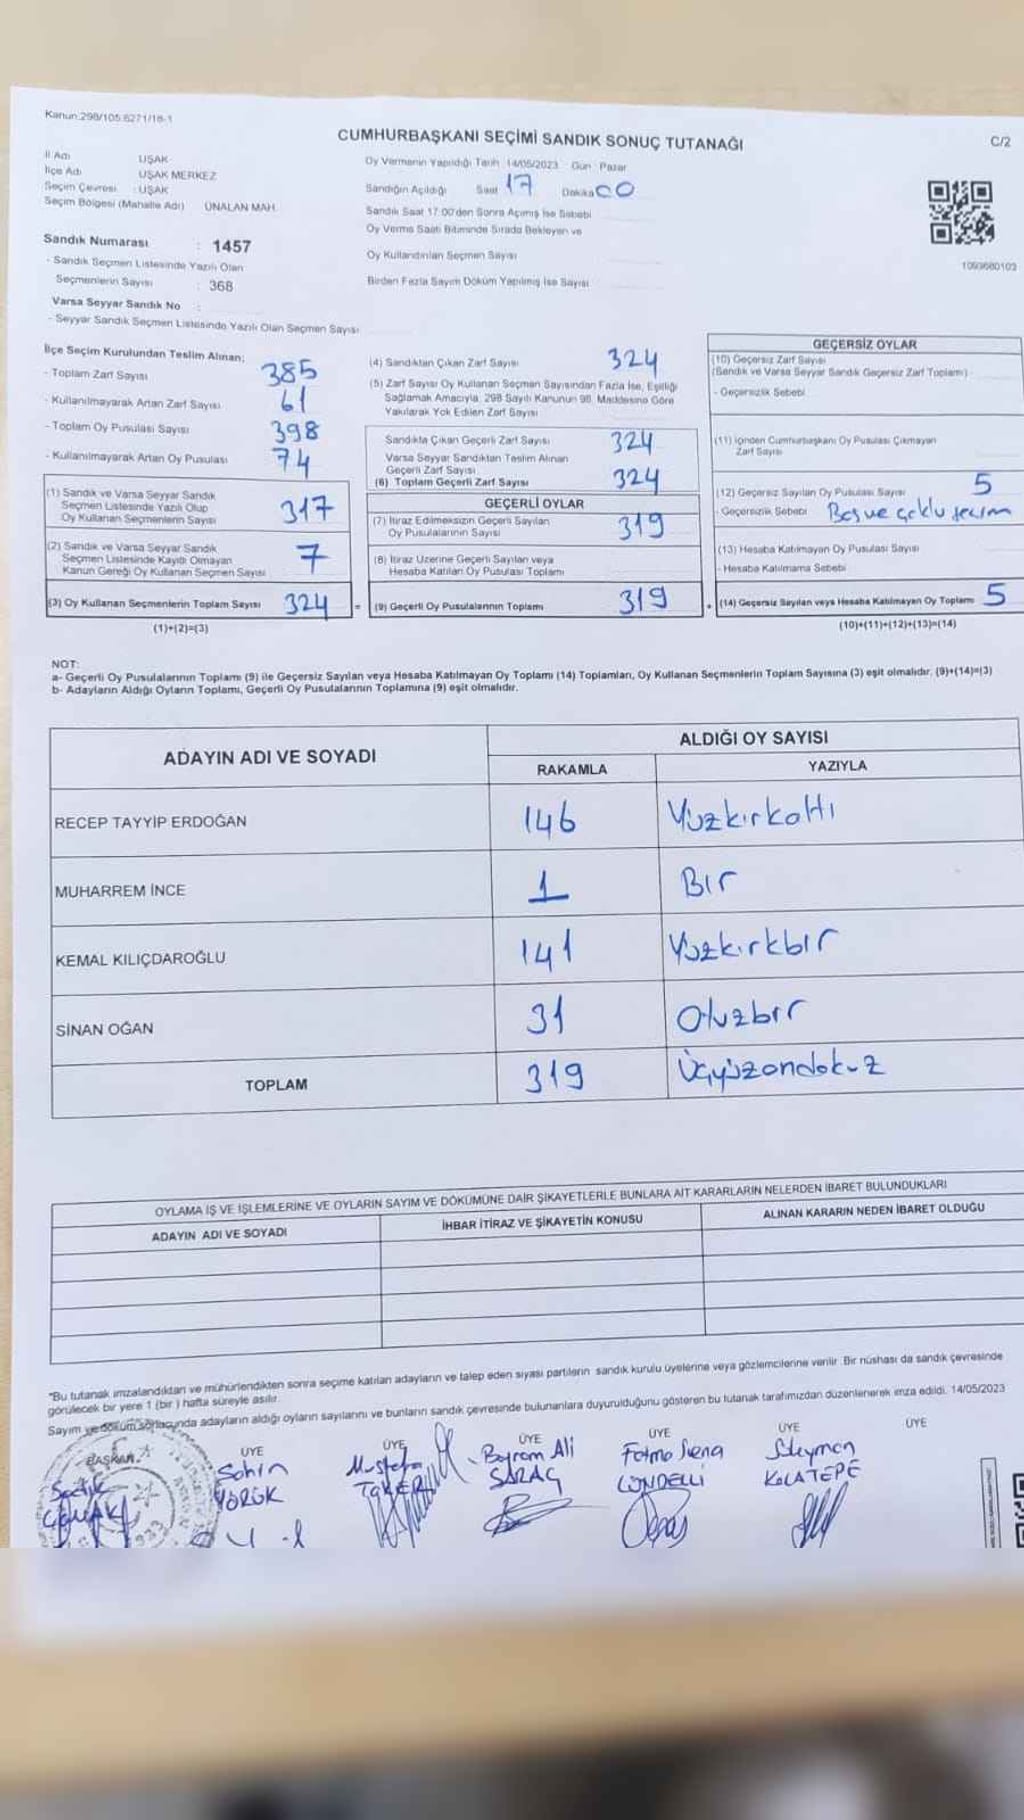 Kanun:298/105.6271/18-1
CUMHURBAŞKANI SEÇİMİ SANDIK SONUÇ TUTANAĞI
C/2
İl Adı UŞAK
İlçe Adı UŞAK MERKEZ
Seçim Çevresi : UŞAK
Seçim Bölgesi (Mahalle Adı) ÜNALAN MAH.
Oy Vermenin Yapıldığı Tarih 14/05/2023 Gün : Pazar
Sandığın Açıldığı Saat 17 Dakika 00
Sandık Saat 17:00'den Sonra Açımış İse Sebebi
Oy Verme Saati Bitiminde Sırada Bekleyen ve
Oy Kullandırılan Seçmen Sayısı
Birden Fazla Sayım Döküm Yapılmış İse Sayısı
1093680103
Sandık Numarası : 1457
- Sandık Seçmen Listesinde Yazılı Olan
Seçmenlerin Sayısı : 368
Varsa Seyyar Sandık No :
- Seyyar Sandık Seçmen Listesinde Yazılı Olan Seçmen Sayısı
İlçe Seçim Kurulundan Teslim Alınan;
- Toplam Zarf Sayısı 385
- Kullanılmayarak Artan Zarf Sayısı 61
- Toplam Oy Pusulası Sayısı 398
- Kullanılmayarak Artan Oy Pusulası 74
(1) Sandık ve Varsa Seyyar Sandık
Seçmen Listesinde Yazılı Olup
Oy Kullanan Seçmenlerin Sayısı 317
(2) Sandık ve Varsa Seyyar Sandık
Seçmen Listesinde Kayıtlı Olmayan
Kanun Gereği Oy Kullanan Seçmen Sayısı 7
(3) Oy Kullanan Seçmenlerin Toplam Sayısı 324 =
(1)+(2)=(3)
(4) Sandıktan Çıkan Zarf Sayısı 324
(5) Zarf Sayısı Oy Kullanan Seçmen Sayısından Fazla İse, Eşitliği
Sağlamak Amacıyla, 298 Sayılı Kanunun 98. Maddesine Göre
Yakılarak Yok Edilen Zarf Sayısı
Sandıkta Çıkan Geçerli Zarf Sayısı 324
Varsa Seyyar Sandıktan Teslim Alınan
Geçerli Zarf Sayısı
(6) Toplam Geçerli Zarf Sayısı 324
GEÇERLİ OYLAR
(7) İtiraz Edilmeksizin Geçerli Sayılan
Oy Pusulalarının Sayısı 319
(8) İtiraz Üzerine Geçerli Sayılan veya
Hesaba Katılan Oy Pusulası Toplamı
(9) Geçerli Oy Pusulalarının Toplamı 319 +
GEÇERSİZ OYLAR
(10) Geçersiz Zarf Sayısı
(Sandık ve Varsa Seyyar Sandık Geçersiz Zarf Toplamı)
- Geçersizlik Sebebi
(11) İçinden Cumhurbaşkanı Oy Pusulası Çıkmayan
Zarf Sayısı
(12) Geçersiz Sayılan Oy Pusulası Sayısı 5
- Geçersizlik Sebebi Boş ve çoklu seçim
(13) Hesaba Katılmayan Oy Pusulası Sayısı
- Hesaba Katılmama Sebebi
(14) Geçersiz Sayılan veya Hesaba Katılmayan Oy Toplamı 5
(10)+(11)+(12)+(13)=(14)
NOT:
a- Geçerli Oy Pusulalarının Toplamı (9) ile Geçersiz Sayılan veya Hesaba Katılmayan Oy Toplamı (14) Toplamları, Oy Kullanan Seçmenlerin Toplam Sayısına (3) eşit olmalıdır. (9)+(14)=(3)
b- Adayların Aldığı Oyların Toplamı, Geçerli Oy Pusulalarının Toplamına (9) eşit olmalıdır.
ADAYIN ADI VE SOYADI
ALDIĞI OY SAYISI
RAKAMLA YAZIYLA
RECEP TAYYİP ERDOĞAN 146 Yüzkırkaltı
MUHARREM İNCE 1 Bir
KEMAL KILIÇDAROĞLU 141 Yüzkırkbir
SİNAN OĞAN 31 Otuzbir
TOPLAM 319 Üçyüzondokuz
OYLAMA İŞ VE İŞLEMLERİNE VE OYLARIN SAYIM VE DÖKÜMÜNE DAİR ŞİKAYETLERLE BUNLARA AİT KARARLARIN NELERDEN İBARET BULUNDUKLARI
ADAYIN ADI VE SOYADI İHBAR İTİRAZ VE ŞİKAYETİN KONUSU ALINAN KARARIN NEDEN İBARET OLDUĞU
"Bu tutanak imzalandıktan ve mühürlendikten sonra seçime katılan adayların ve talep eden siyasi partilerin sandık kurulu üyelerine veya gözlemcilerine verilir. Bir nüshası da sandık çevresinde
görülecek bir yere 1 (bir) hafta süreyle asılır.
Sayım ve döküm sonucunda adayların aldığı oyların sayılarını ve bunların sandık çevresinde bulunanlara duyurulduğunu gösteren bu tutanak tarafımızdan düzenlenerek imza edildi. 14/05/2023
BAŞKAN ÜYE ÜYE ÜYE ÜYE ÜYE ÜYE
Sadık Şahin Mustafa Bayram Ali Fatma Sena Süleyman
YÖRÜK SARAÇ KOLATEPE